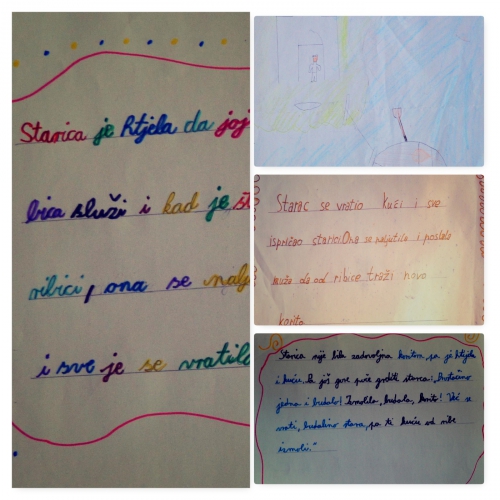 Starica je htjela da joj
bica služi i kad je
ribici, ona se
i sve je se vratilo
Starac se vratio kući i sve
ispričao starici. Ona se naljutila i poslala
muža da od ribice traži novo
korito
Starica nije bila zadovoljna koritom, pa je htjela
i kuću. Pa još gore poče grditi starca: „Prostačino
jedna i budalo! Izmolila, budala, korito! Već se
vrati, budalino stara, pa ti kuću od ribe
izmoli.“